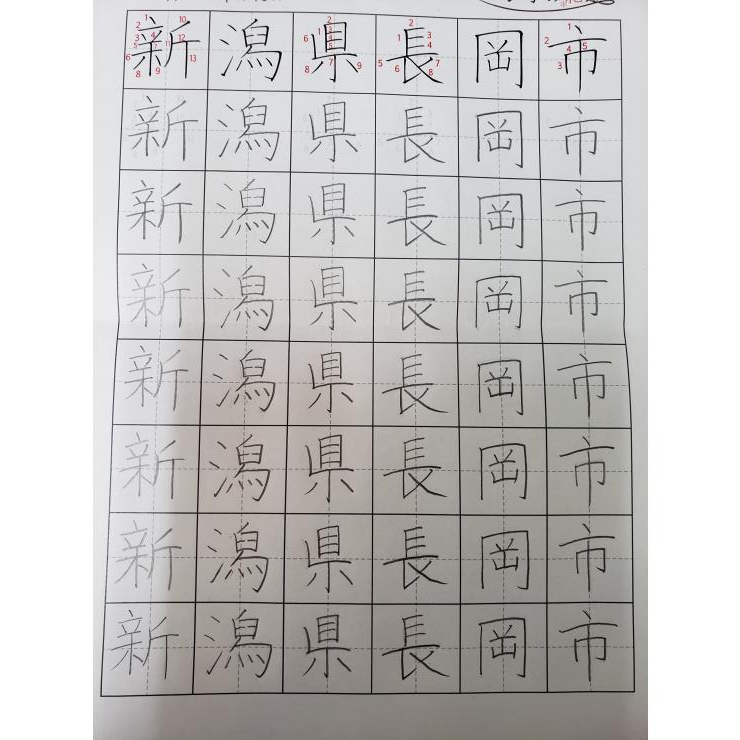 新潟県長岡市
新潟県長岡市
新潟県長岡市
新潟県長岡市
新潟県長岡市
新潟県長岡市
新潟県長岡市
新潟県長岡市